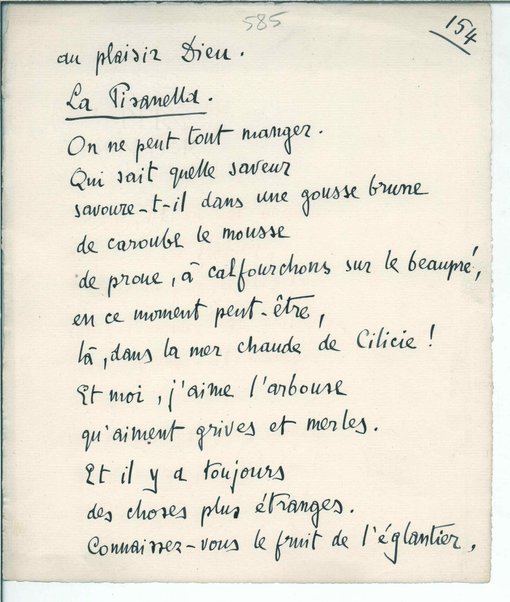 585
154
au plaisir Dieu.
La Pisanella.
On ne peut tout manger.
Qui sait quelle saveur
savoure-t-il dans une gousse brune
de caroube le mousse
de proue, à califourchons sur le beaupré,
en ce moment peut-être,
là, dans la mer chaude de Cilicie !
Et moi, j'aime l'arbouse
qu'aiment grives et merles.
Et il y a toujours
des choses plus étranges.
Connaissez-vous le fruit de l'églantier,